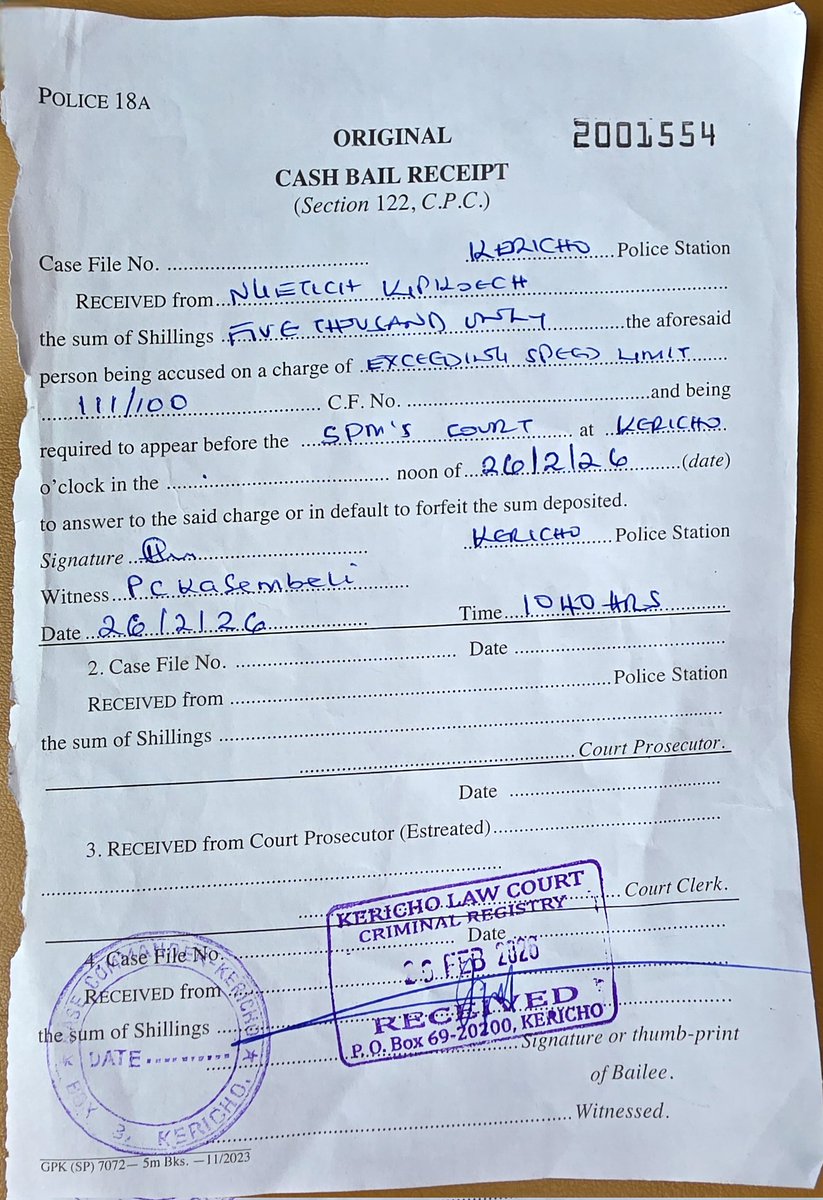 POLICE 18A
ORIGINAL 2001554
CASH BAIL RECEIPT
(Section 122, C.P.C.)
Case File No. .............................. KERICHO Police Station
RECEIVED from NGETICH KIPKOECH
the sum of Shillings FIVE THOUSAND ONLY the aforesaid
person being accused on a charge of EXCEEDING SPEED LIMIT
111/100 C.F. No. .............................. and being
required to appear before the SPM'S COURT at KERICHO
o'clock in the .............................. noon of 26/2/26 (date)
to answer to the said charge or in default to forfeit the sum deposited.
Signature .............................. KERICHO Police Station
Witness PC KASEMBELI
Date 26/2/26 Time 1040 HRS
2. Case File No. .............................. Date ..............................
RECEIVED from .............................. Police Station
the sum of Shillings ..............................
.............................. Court Prosecutor.
Date ..............................
3. RECEIVED from Court Prosecutor (Estreated)..............................
.............................. Court Clerk.
KERICHO LAW COURT
CRIMINAL REGISTRY
4. Case File No. .............................. Date ..............................
FEB 2026
RECEIVED from ..............................
RECEIVED
the sum of Shillings ..............................
P. O. Box 69-20200, KERICHO
Signature or thumb-print
of Bailee.
.............................. Witnessed.
KERICHO
DATE
BOX 3, KERICHO.
GPK (SP) 7072— 5m Bks. —11/2023